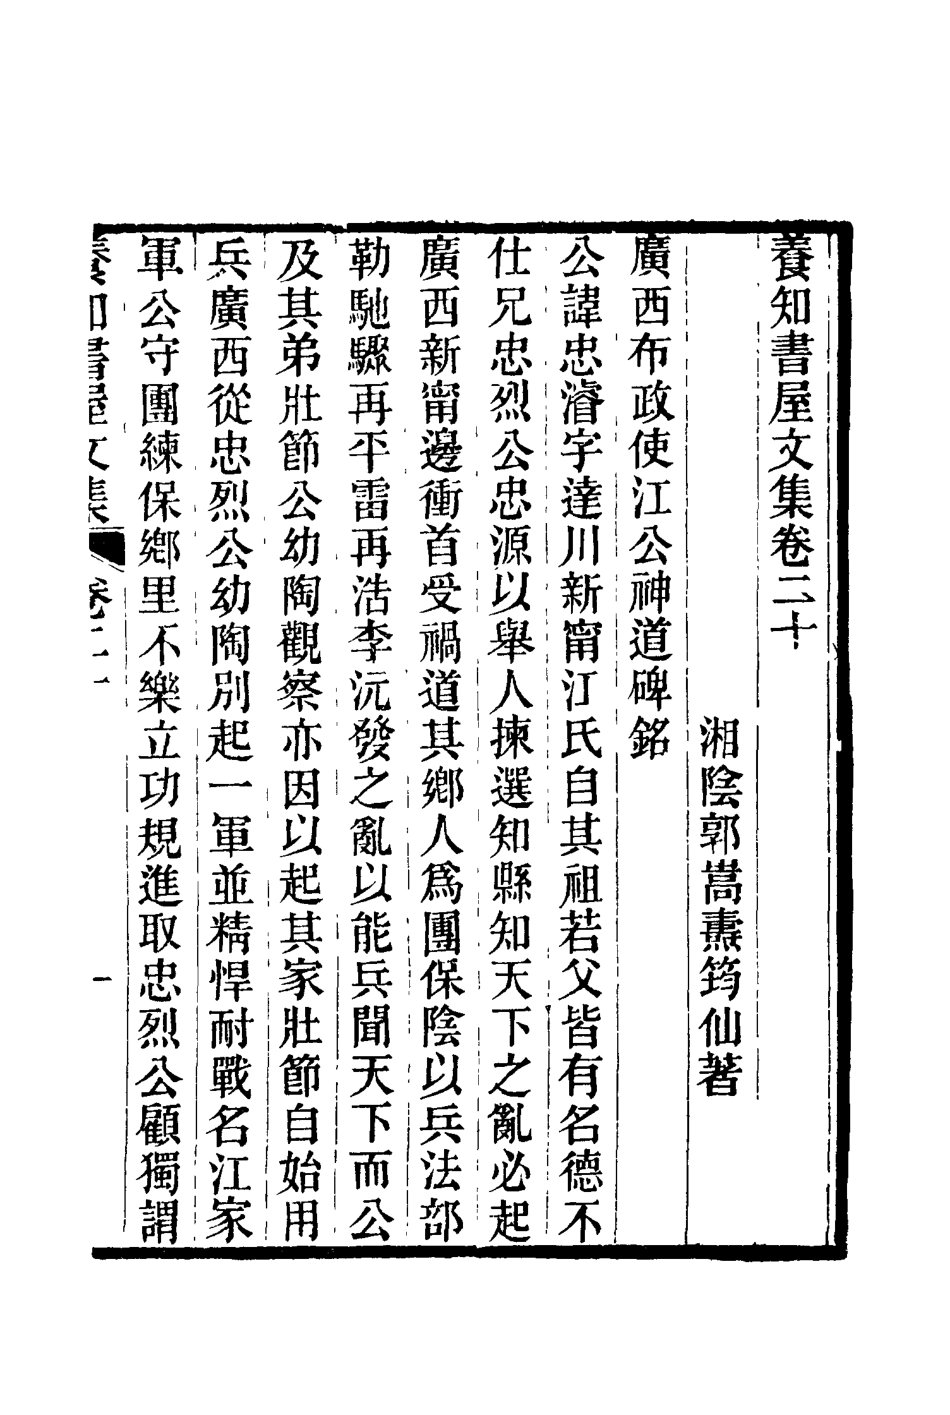 養知書屋文集卷二十
湘陰郭嵩燾筠仙著
廣西布政使江公神道碑銘
公諱忠濬字達川新甯江氏自其祖若父皆有名德不
仕兄忠烈公忠源以舉人揀選知縣知天下之亂必起
廣西新甯邊衝首受禍道其鄉人爲團保陰以兵法部
勒馳驟再平雷再浩李沅發之亂以能兵聞天下而公
及其弟壯節公幼陶觀察亦因以起其家壯節自始用
兵廣西從忠烈公幼陶別起一軍並精悍耐戰名江家
軍公守團練保鄉里不樂立功規進取忠烈公顧獨謂
養知書屋文集 卷二十 一